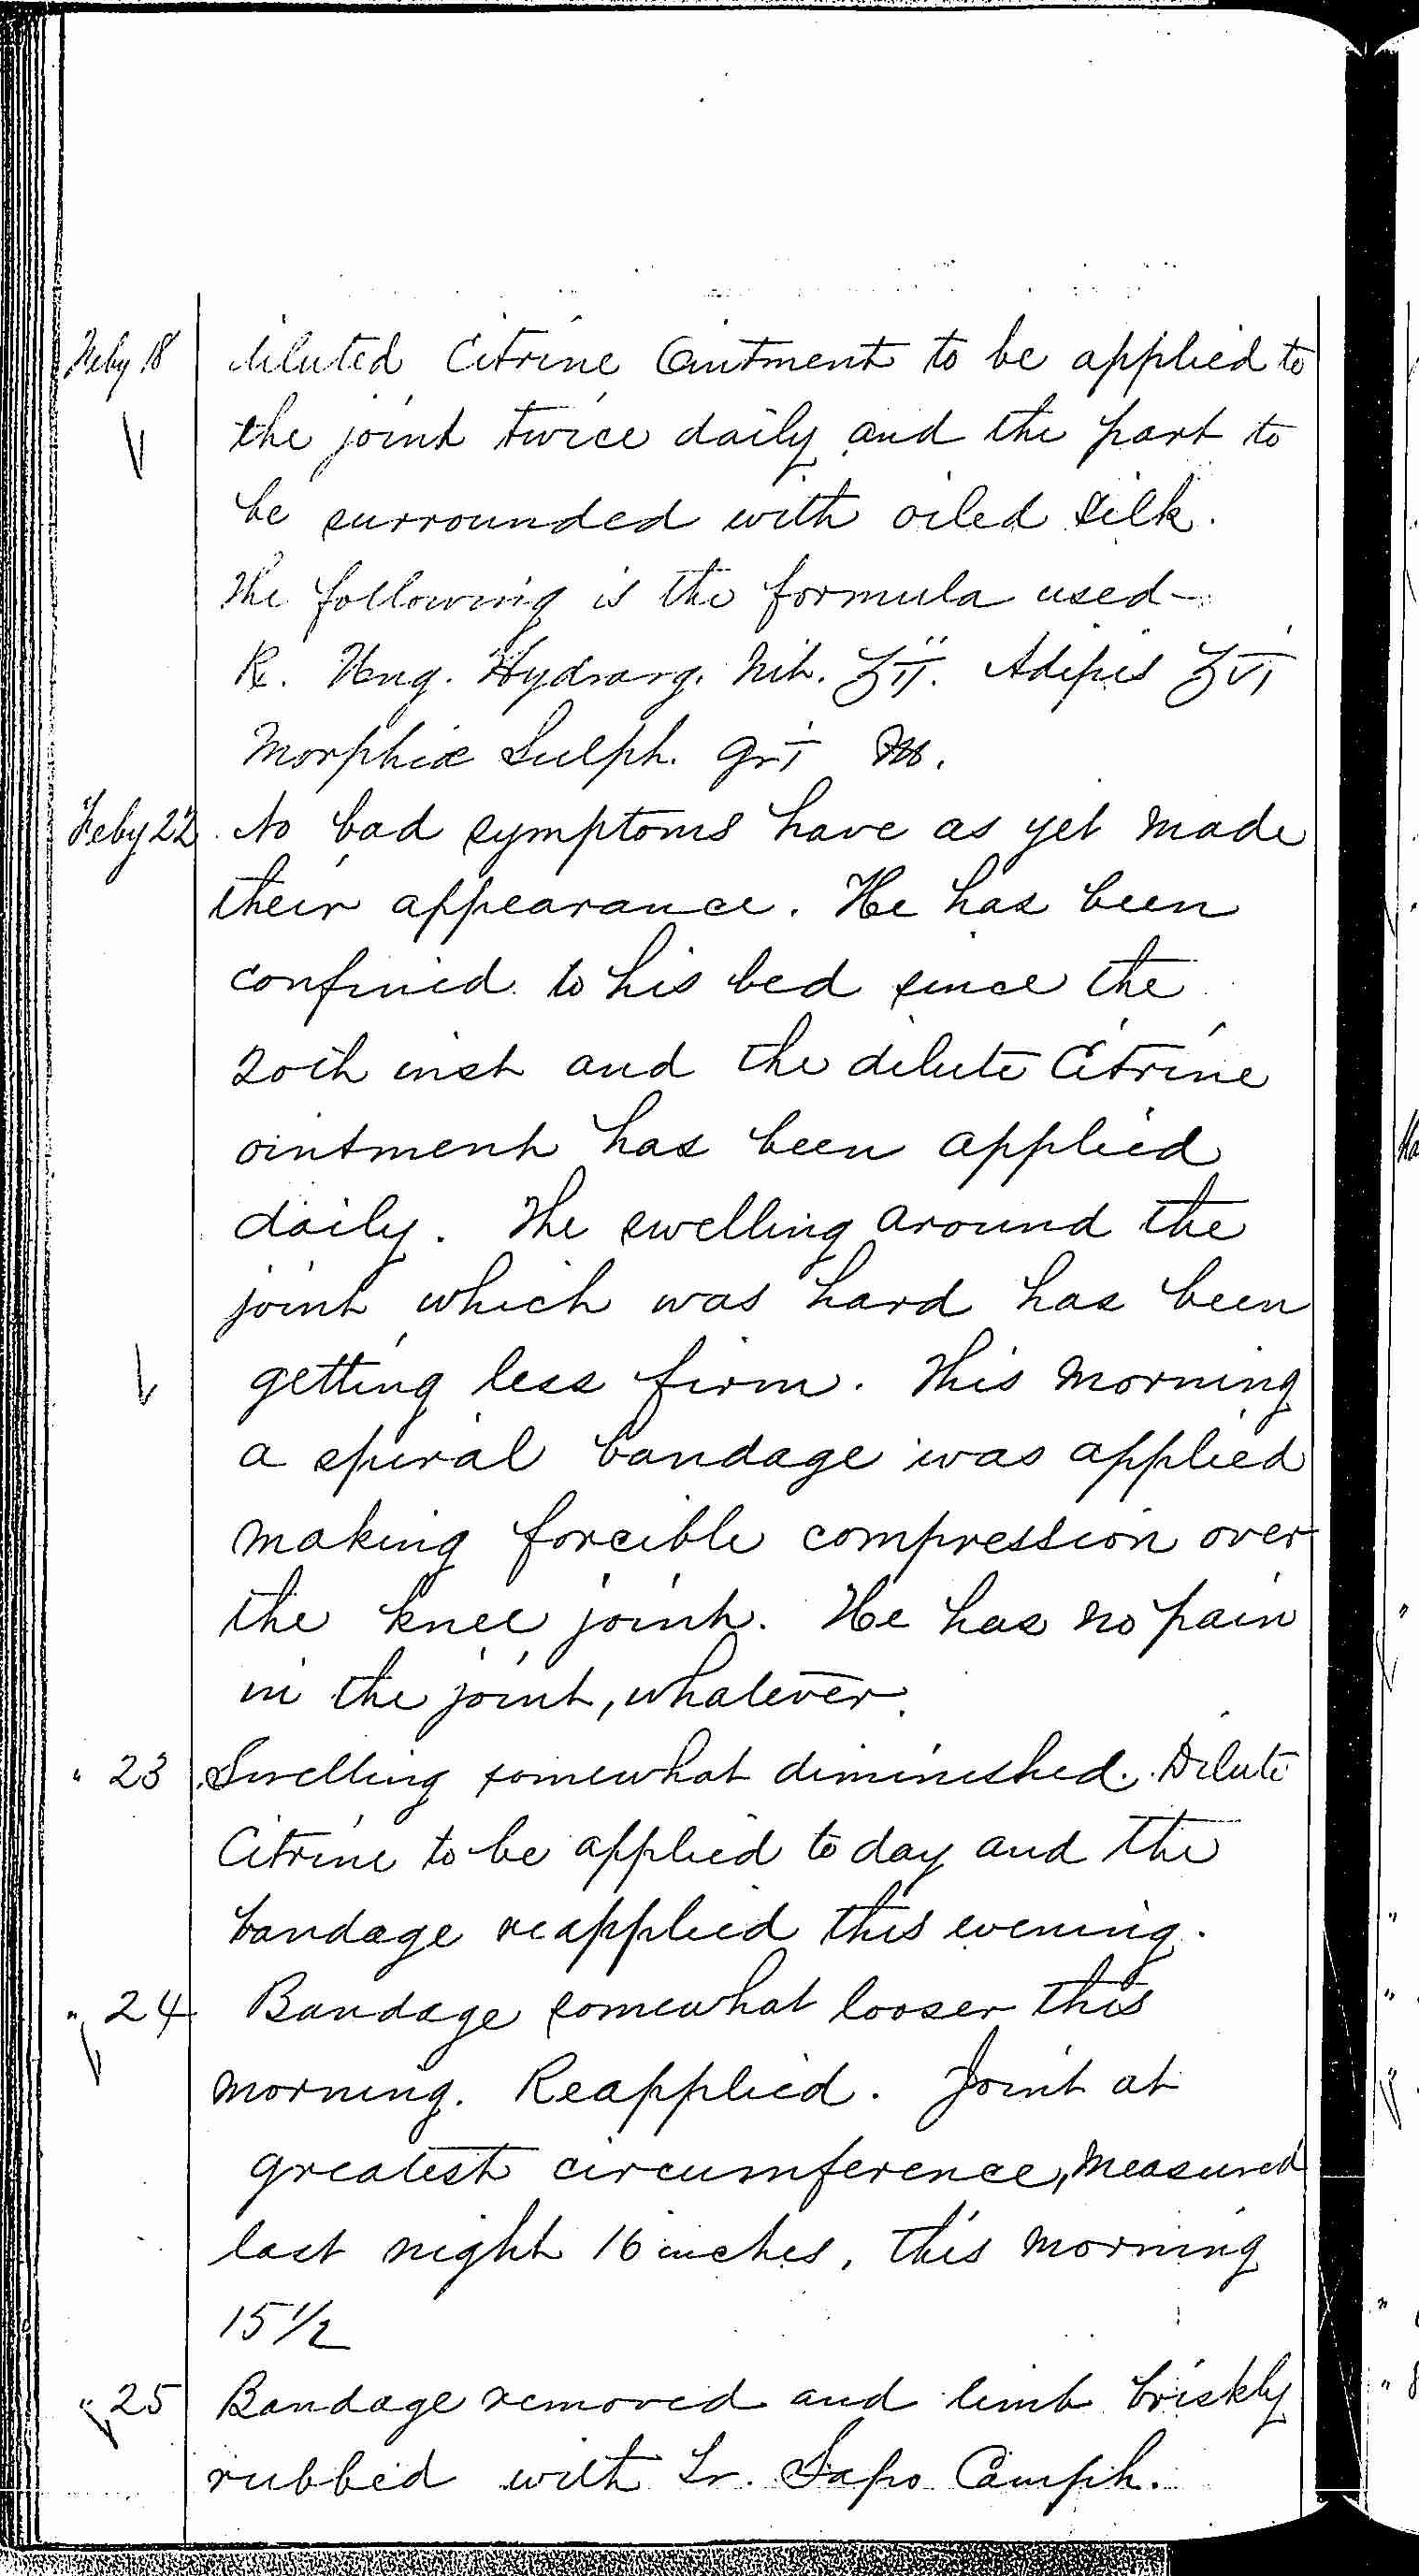 Feby 18 diluted Citrine Ointment to be applied to
the joint twice daily and the part to
be surrounded with oiled silk.
The following is the formula used—
℞. Ung. Hydrarg. Nit. ʒii. Adipis ʒvi
Morphiæ Sulph. gr i M.
Feby 22. No bad symptoms have as yet made
their appearance. He has been
confined to his bed since the
20th inst and the dilute Citrine
ointment has been applied
daily. The swelling around the
joint which was hard has been
getting less firm. This morning
a spiral bandage was applied
making forcible compression over
the knee joint. He has no pain
in the joint, whatever.
" 23 Swelling somewhat diminished. Dilute
Citrine to be applied to day and the
bandage reapplied this evening.
" 24 Bandage somewhat looser this
morning. Reapplied. Joint at
greatest circumference, measured
last night 16 inches, this morning
15 1/2
" 25 Bandage removed and limb briskly
rubbed with Sapo Camph.